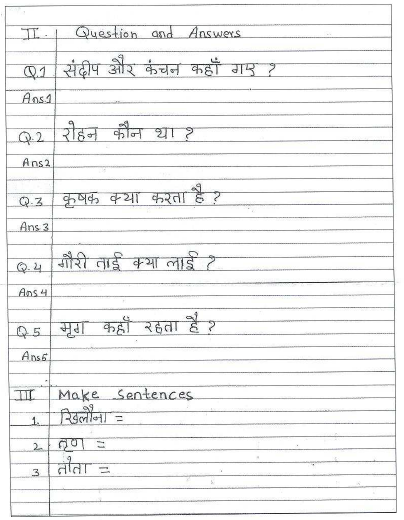 II. Question and Answers
Q.1 संदीप और कंचन कहाँ गए ?
Ans1
Q.2 रोहन कौन था ?
Ans2
Q.3 कृषक क्या करता है ?
Ans3
Q.4 गौरी ताई क्या लाई ?
Ans4
Q5 मृग कहाँ रहता है ?
Ans5
III Make Sentences
1. खिलौना =
2. तृण =
3 तोता =